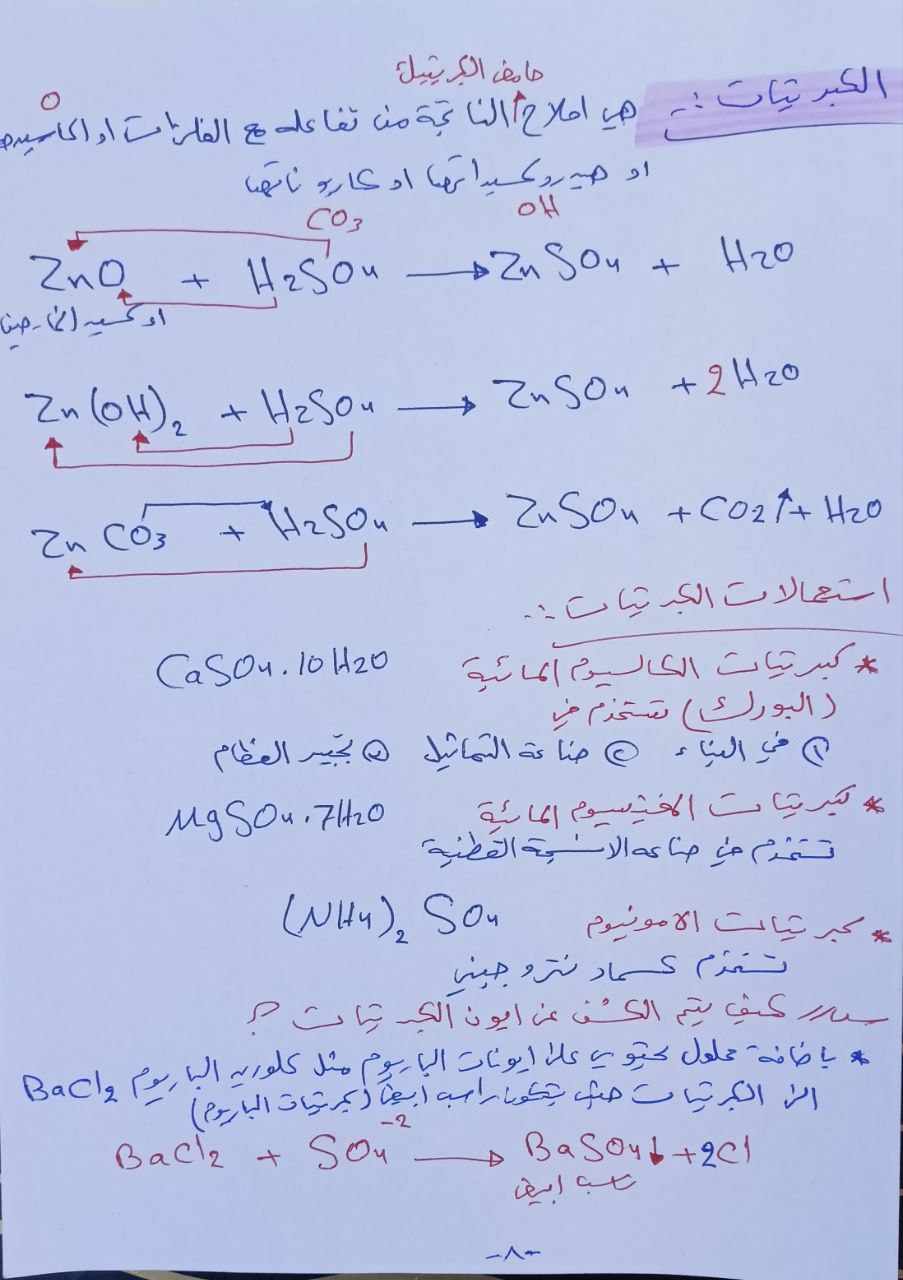 حامض الكبريتيك
الكبريتيات :- هي املاح الناتجة من تفاعله مع الفلزات او اكاسيدها
O
او هيدروكسيداتها او كاربوناتها
CO3 OH
ZnO + H2SO4 → ZnSO4 + H2O
اوكسيد الخارصين
Zn(OH)2 + H2SO4 → ZnSO4 + 2H2O
ZnCO3 + H2SO4 → ZnSO4 + CO2↑ + H2O
استعمالات الكبريتيات :-
* كبريتيات الكالسيوم المائية CaSO4.10H2O
(البورك) تستخدم في
١ في البناء ٢ صناعة التماثيل ٣ تجبير العظام
* كبريتيات المغنيسيوم المائية MgSO4.7H2O
تستخدم في صناعه الانسجة القطنية
* كبريتيات الامونيوم (NH4)2SO4
تستخدم كسماد نتروجيني
س/ كيف يتم الكشف عن ايون الكبريتيات ؟
* باضافة محلول يحتوي على ايونات الباريوم مثل كلوريد الباريوم BaCl2
الى الكبريتيات حيث يتكون راسب ابيض (كبريتيات الباريوم)
BaCl2 + SO4-2 → BaSO4↓ + 2Cl
راسب ابيض
-٨-